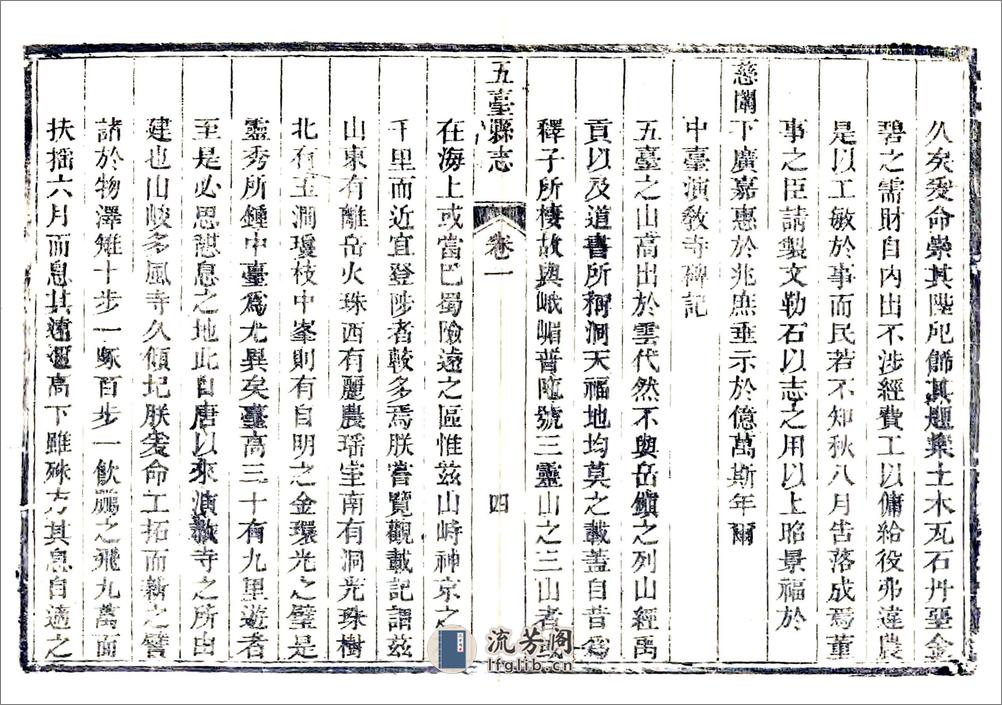 久矣爰命崇其陛戺飾其題粢土木瓦石丹堊金
碧之需財自內出不涉經費工以傭給役弗違農
是以工敏於事而民若不知秋八月告落成焉董
事之臣請製文勒石以志之用以上昭景福於
慈闈下廣嘉惠於兆庶垂示於億萬斯年爾
中臺演敎寺碑記
五臺之山高出於雲代然不與岳鎭之列山經禹
貢以及道書所稱洞天福地均莫之載蓋自昔爲
釋子所棲故與峨嵋普陀號三靈山之三山者或
五臺縣志
卷一
四
在海上或當巴蜀險遠之區惟茲山峙神京之
千里而近宜登陟者較多焉朕嘗覽觀載記謂茲
山東有離岳火珠西有麗農瑤室南有洞光珠樹
北有玉澗瓊枝中峯則有自明之金環光之璧是
靈秀所鍾中臺爲尤異矣臺高三十有九里遊者
至是必思憇息之地此自唐以來演敎寺之所由
建也山峻多風寺久傾圮朕爰命工拓而新之譬
諸於物澤雉十步一啄百步一飮鵬之飛九萬而
扶搖六月而息其遠邇高下雖殊方其息自適之
流芳閣
lfglib.cn